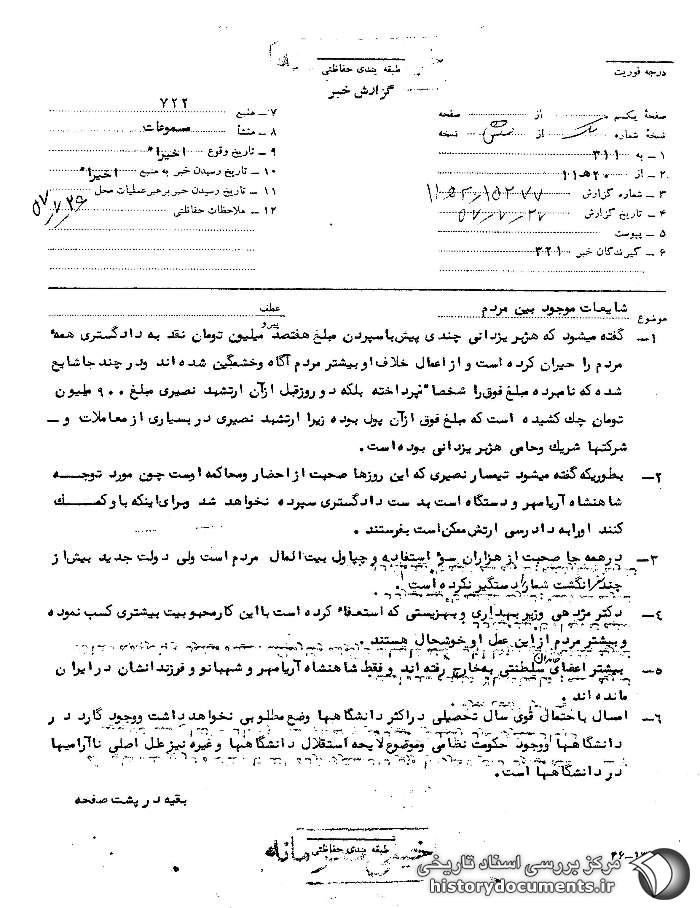 طبقه بندی حفاظتی
گزارش خبر
درجه فوریت
صفحهٔ یکم از صفحه
نسخهٔ شماره یک از شش نسخه
۱ــ به ۳۱۱
۲ــ از ۲۰هـ۱۱
۳ــ شماره گزارش
۴ــ تاریخ گزارش ۵۷/۷/۲۷
۵ــ پیوست
۶ــ گیرندگان خبر ۳۲۱
۷ــ منبع ۷۲۲
۸ــ منشأ مسموعات
۹ــ تاریخ وقوع اخیرا"
۱۰ــ تاریخ رسیدن خبر به منبع اخیرا"
۱۱ــ تاریخ رسیدن خبر برهبرعملیات محل ۵۷/۷/۲۶
۱۲ــ ملاحظات حفاظتی
موضوع شایعات موجود بین مردم عطف
پیرو
۱ــ گفته میشود که هژبر یزدانی چندی پیش باسپردن مبلغ هفتصد میلیون تومان نقد به دادگستری همهٔ
مردم را حیران کرده است و از اعمال خلاف او بیشتر مردم آگاه وخشمگین شده اند ودر چند جاشایع
شده که نامبرده مبلغ فوق را شخصا" نپرداخته بلکه دو روزقبل ازآن ارتشبد نصیری مبلغ ۹۰۰ ملیون
تومان چك کشیده است که مبلغ فوق ازآن پول بوده زیرا ارتشبد نصیری در بسیاری از معاملات و ــ
شرکتها شریك وحامی هژبر یزدانی بوده است.
۲ــ بطوریکه گفته میشود تیمسار نصیری که این روزها صحبت از احضار ومحاکمه اوست چون مورد توجه
شاهنشاه آریامهر و دستگاه است بدست دادگستری سپرده نخواهد شد وبرای اینکه باو کمك
کنند اورابه دادرسی ارتش ممکن است بفرستند .
۳ــ درهمه جا صحبت از هزاران سوء استفاده و چپاول بیت المال مردم است ولی دولت جدید بیش از
چند نفر انگشت شمار را دستگیر نکرده است .
۴ــ دکتر مژدهی وزیر بهداری و بهزیستی که استعفاء کرده است بااین کارمحبوبیت بیشتری کسب نموده
و بیشتر مردم از این عمل او خوشحال هستند .
۵ــ بیشتر اعضای خاندان سلطنتی به خارج رفته اند و فقط شاهنشاه آریامهر و شهبانو و فرزندانشان در ایران
مانده اند .
۶ــ امسال باحتمال قوی سال تحصیلی دراکثر دانشگاهها وضع مطلوبی نخواهد داشت ووجود گارد در
دانشگاهها ووجود حکومت نظامی وموضوع لایحه استقلال دانشگاهها و غیره نیز علل اصلی ناآرامیها
در دانشگاهها است.
بقیه در پشت صفحه
طبقه بندی حفاظتی
خیلی محرمانه
مرکز بررسی اسناد تاریخی
historydocuments.ir